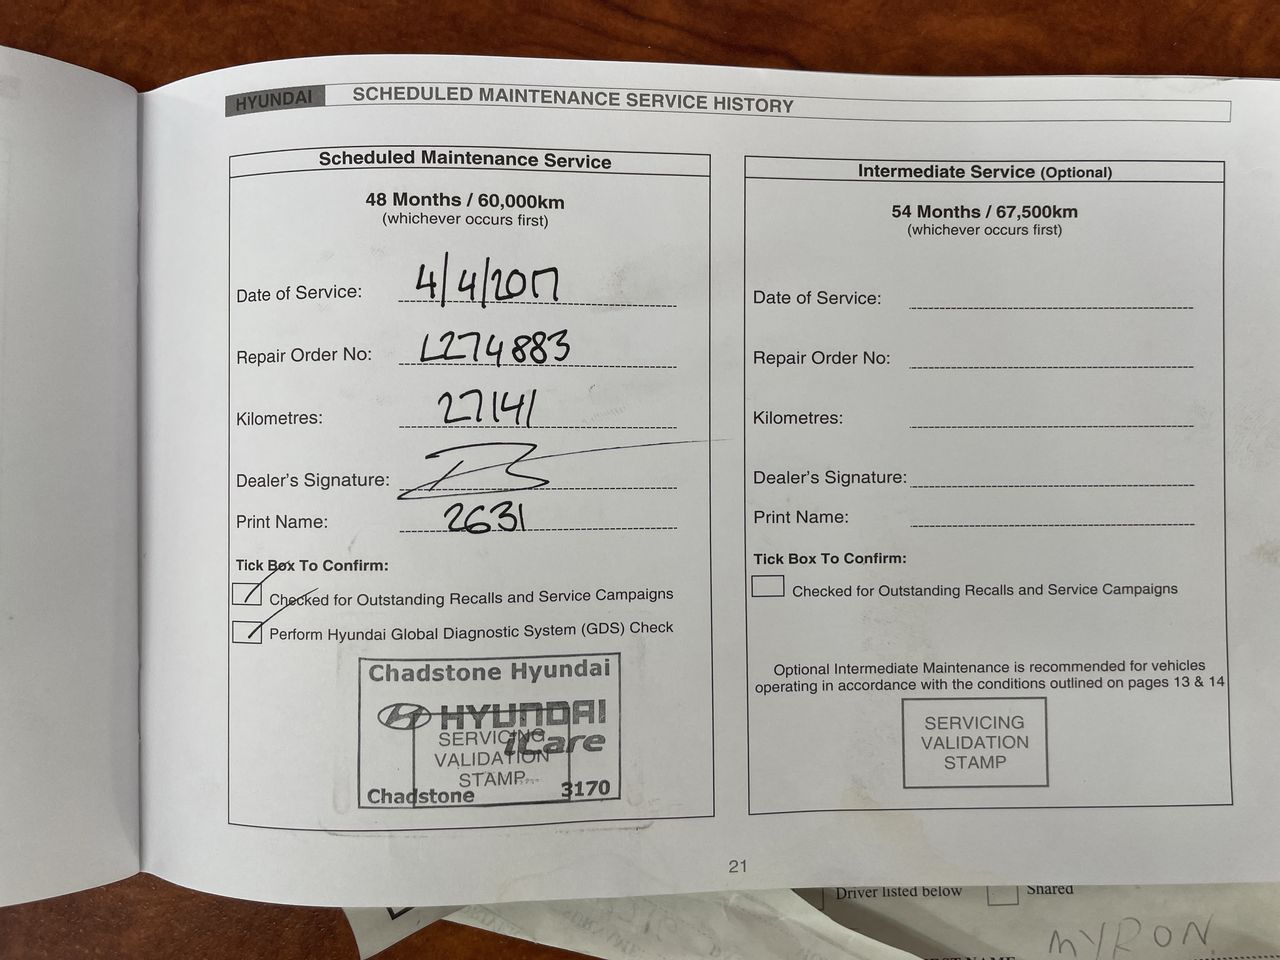 HYUNDAI SCHEDULED MAINTENANCE SERVICE HISTORY
Scheduled Maintenance Service
48 Months / 60,000km
(whichever occurs first)
Date of Service: 4/4/2017
Repair Order No: L274883
Kilometres: 27141
Dealer's Signature:
Print Name: 2631
Tick Box To Confirm:
Checked for Outstanding Recalls and Service Campaigns
Perform Hyundai Global Diagnostic System (GDS) Check
Chadstone Hyundai
HYUNDAI
iCare
SERVICING
VALIDATION
STAMP
Chadstone 3170
Intermediate Service (Optional)
54 Months / 67,500km
(whichever occurs first)
Date of Service:
Repair Order No:
Kilometres:
Dealer's Signature:
Print Name:
Tick Box To Confirm:
Checked for Outstanding Recalls and Service Campaigns
Optional Intermediate Maintenance is recommended for vehicles
operating in accordance with the conditions outlined on pages 13 & 14
SERVICING
VALIDATION
STAMP
21
Driver listed below Shared
MYRON